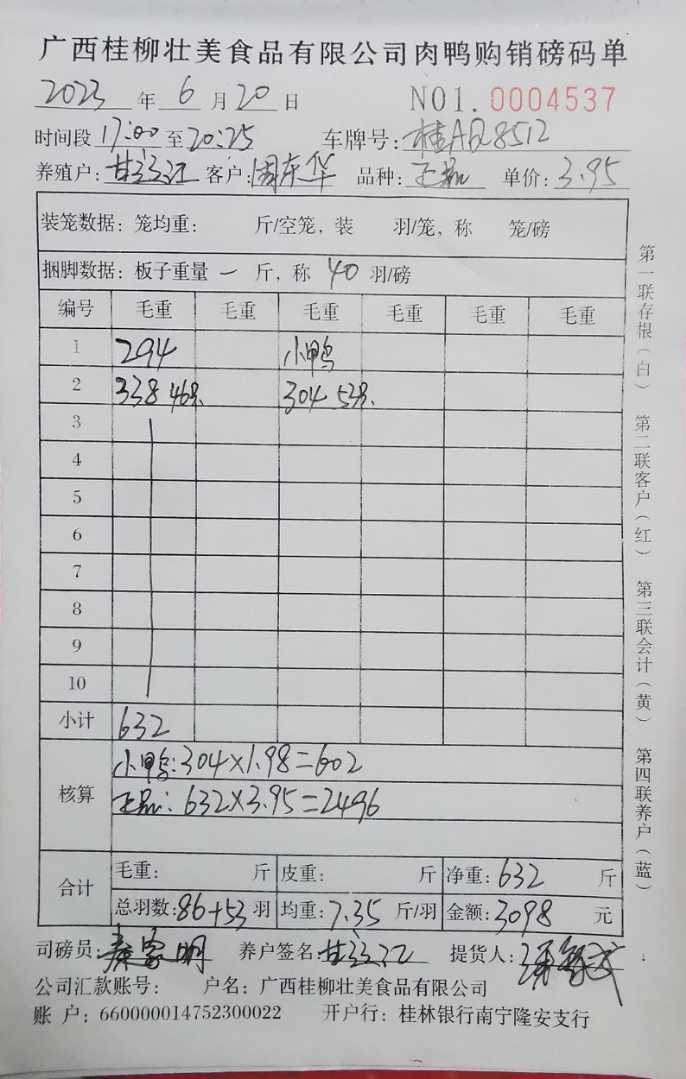 广西桂柳壮美食品有限公司肉鸭购销磅码单
2023 年 6 月 20 日 NO1. 0004537
时间段 17:00 至 20:25 车牌号: 桂AQ8512
养殖户: 甘立江 客户: 周东华 品种: 正品 单价: 3.95
装笼数据: 笼均重: 斤/空笼, 装 羽/笼, 称 笼/磅
捆脚数据: 板子重量 一 斤, 称 40 羽/磅
编号 毛重 毛重 毛重 毛重 毛重 毛重
1 294 小鸭
2 338 46只. 304 53只.
3
4
5
6
7
8
9
10
小计 632
核算 小鸭: 304×1.98=602
正品: 632×3.95=2496
合计 毛重: 斤 皮重: 斤 净重: 632 斤
总羽数: 86+53 羽 均重: 7.35 斤/羽 金额: 3098 元
司磅员: 家明 养户签名 甘立江 提货人:
公司汇款账号: 户名: 广西桂柳壮美食品有限公司
账 户: 660000014752300022 开户行: 桂林银行南宁隆安支行
第一联存根(白) 第二联客户(红) 第三联会计(黄) 第四联养户(蓝)